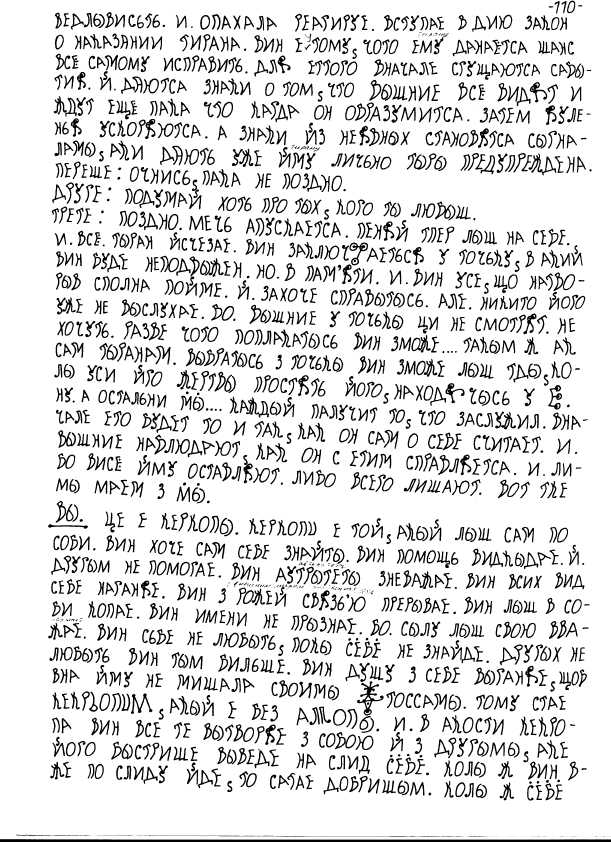 -110-
ВЕДЛЫВИСЬТЬ. И. ОПАХАЛА РЕАГИРУЕ. ВСТУПАЕ В ДИЮ ЗАКОН
О НАКАЗАНИИ ТИРАНА. ВИН Е ТОМУ, ЧОТО ЕМУ ДАНАЕТСА ШАНС
ВСЕ САМОМУ ИСПРАВИТЬ. ДЛЯ ЕТТОГО ВНАЧАЛЕ СГУЩАЮТСА САБЫ-
ТИЯ. Й. ДАЮТСА ЗНАКИ О ТОМ, ЧТО ВЫШНИЕ ВСЁ ВИДЯТ И
ЖДУТ ЕЩЕ ПАКА ЧТО КАГДА ОН ОБРАЗУМИТСА. ЗАТЕМ
УСКОРЯЮТСА. А ЗНАКИ ЙЗ НЕЯВНЫХ СТАНОВЯТСА СЫГНА-
ЛАМЫ, АКИ ДАЮТЬ УЖЕ ЙМУ ЛИЧЬНО ТЫРЫ ПРЕДУПРЕЖДЕНА.
ПЕРШЕ: ОЧНИСЬ, ПАКА НЕ ПОЗДНО.
ДРУГЕ: ПОДУМАЙ ХОТЬ ПРО ТЫХ, КОГО ТЫ ЛЮБЫШ.
ТРЕТЕ: ПОЗДНО. МЕЧЬ АПУСКАЕТСА. ПЕНЯЙ ТПЕР ЛЫШ НА СЕБЕ.
И. ВСЁ. ТЫРАН ЙСЧЕЗАЕ. ВИН ЗАКЛЮЧАЕТЬСЯ У ТОЧЬКУ, В АКИЙ
ВИН БУДЕ НЕПОДВЫЖЕН. НО. В ПАМЯТИ. И. ВИН УСЕ, ЩО НАТВО-
РЫВ СПОЛНА ПОЙМЕ. Й. ЗАХОЧЕ СПРАВЫТЫСЬ. АЛЕ. НИКИТО ЙОГО
УЖЕ НЕ ВЫСЛУХАЕ. БО. ВЫШНИЕ У ТОЧЬКЫ ЦИ НЕ СМОТРЯТ. НЕ
ХОЧУТЬ. РАЗВЕ ЧОТО ПОПЛАКАТЫСЬ ВИН ЗМОЖЕ.... ТАКЫМ Ж АК
САМ ТЫРАНАМ. ВЫБРАТЫСЬ З ТОЧЬКЫ ВИН ЗМОЖЕ ЛЫШ ТДЫ, КО-
ЛЫ УСИ ЙГО ЖЕРТВЫ ПРОСТЯТЬ ЙОГО, НАХОДЯЧЫСЬ У
НУ. А ОСТАЛЬНИ МЫ.... КАЖДЫЙ ПАЛУЧИТ ТО, ЧТО ЗАСЛУЖИЛ. ВНА-
ЧАЛЕ ЕТО БУДЕТ ТО И ТАК, КАК ОН САМ О СЕБЕ СЧИТАЕТ. И.
ВЫШНИЕ НАБЛЮДАЮТ, КАК ОН С ЕТИМ СПРАВЛЯЕТСА. И. ЛИ-
БО ВИСЕ ЙМУ ОСТАВЛЯЮТ. ЛИБО ВСЕГО ЛИШАЮТ. ВОТ ТКЕ
МЫ МАЕМ З МЫ.
ВЫ. ЦЕ Е КЕРКОПЫ. КЕРКОПИ Е ТОЙ, АКЫЙ ЛЫШ САМ ПО
СОБИ. ВИН ХОЧЕ САМ СЕБЕ ЗНАЙТЫ. ВИН ПОМОЩЬ ВИДКЫДАЕ. Й.
ДРУГЫМ НЕ ПОМОГАЕ. ВИН АУТРЫТЕТЫ ЗНЕВАЖАЕ. ВИН ВСИХ ВИД
СЕБЕ НАГАНЯЕ. ВИН З РОЖЕЙ СВЯЗЬЮ ПРЕРЫВАЕ. ВИН ЛЫШ В СО-
БИ КОПАЕ. ВИН ИМЕНИ НЕ ПРЫЗНАЕ. БО. СЫЛУ ЛЫШ СВОЮ ВВА-
ЖАЕ. ВИН СЬБЕ НЕ ЛЮБЫТЬ, ПОКЫ СЕБЕ НЕ ЗНАЙДЕ. ДРУГЫХ НЕ
ЛЮБЫТЬ ВИН ТЫМ БИЛЬШЕ. ВИН ДУЩУ З СЕБЕ ВЫГАНЯЕ, ЩОБ
ВНА ЙМУ НЕ МИШАЛА СВОИМЫ ТОССАМЫ. ТОМУ СТАЕ
АКЫЙ Е БЕЗ И. В АКОСТИ КЕКРО-
ПА ВИН ВСЕ ТЕ ВЫТВОРЯЕ З СОБОЮ Й З ДРУГЫМЫ, АКЕ
ЙОГО БЫСТРИЩЕ ВЫВЕДЕ НА СЛИД СЕБЕ. КОЛЫ Ж ВИН В-
ЖЕ ПО СЛИДУ ЙДЕ, ТО САТАЕ ДОБРИШЫМ. КОЛЫ Ж СЕБЕ